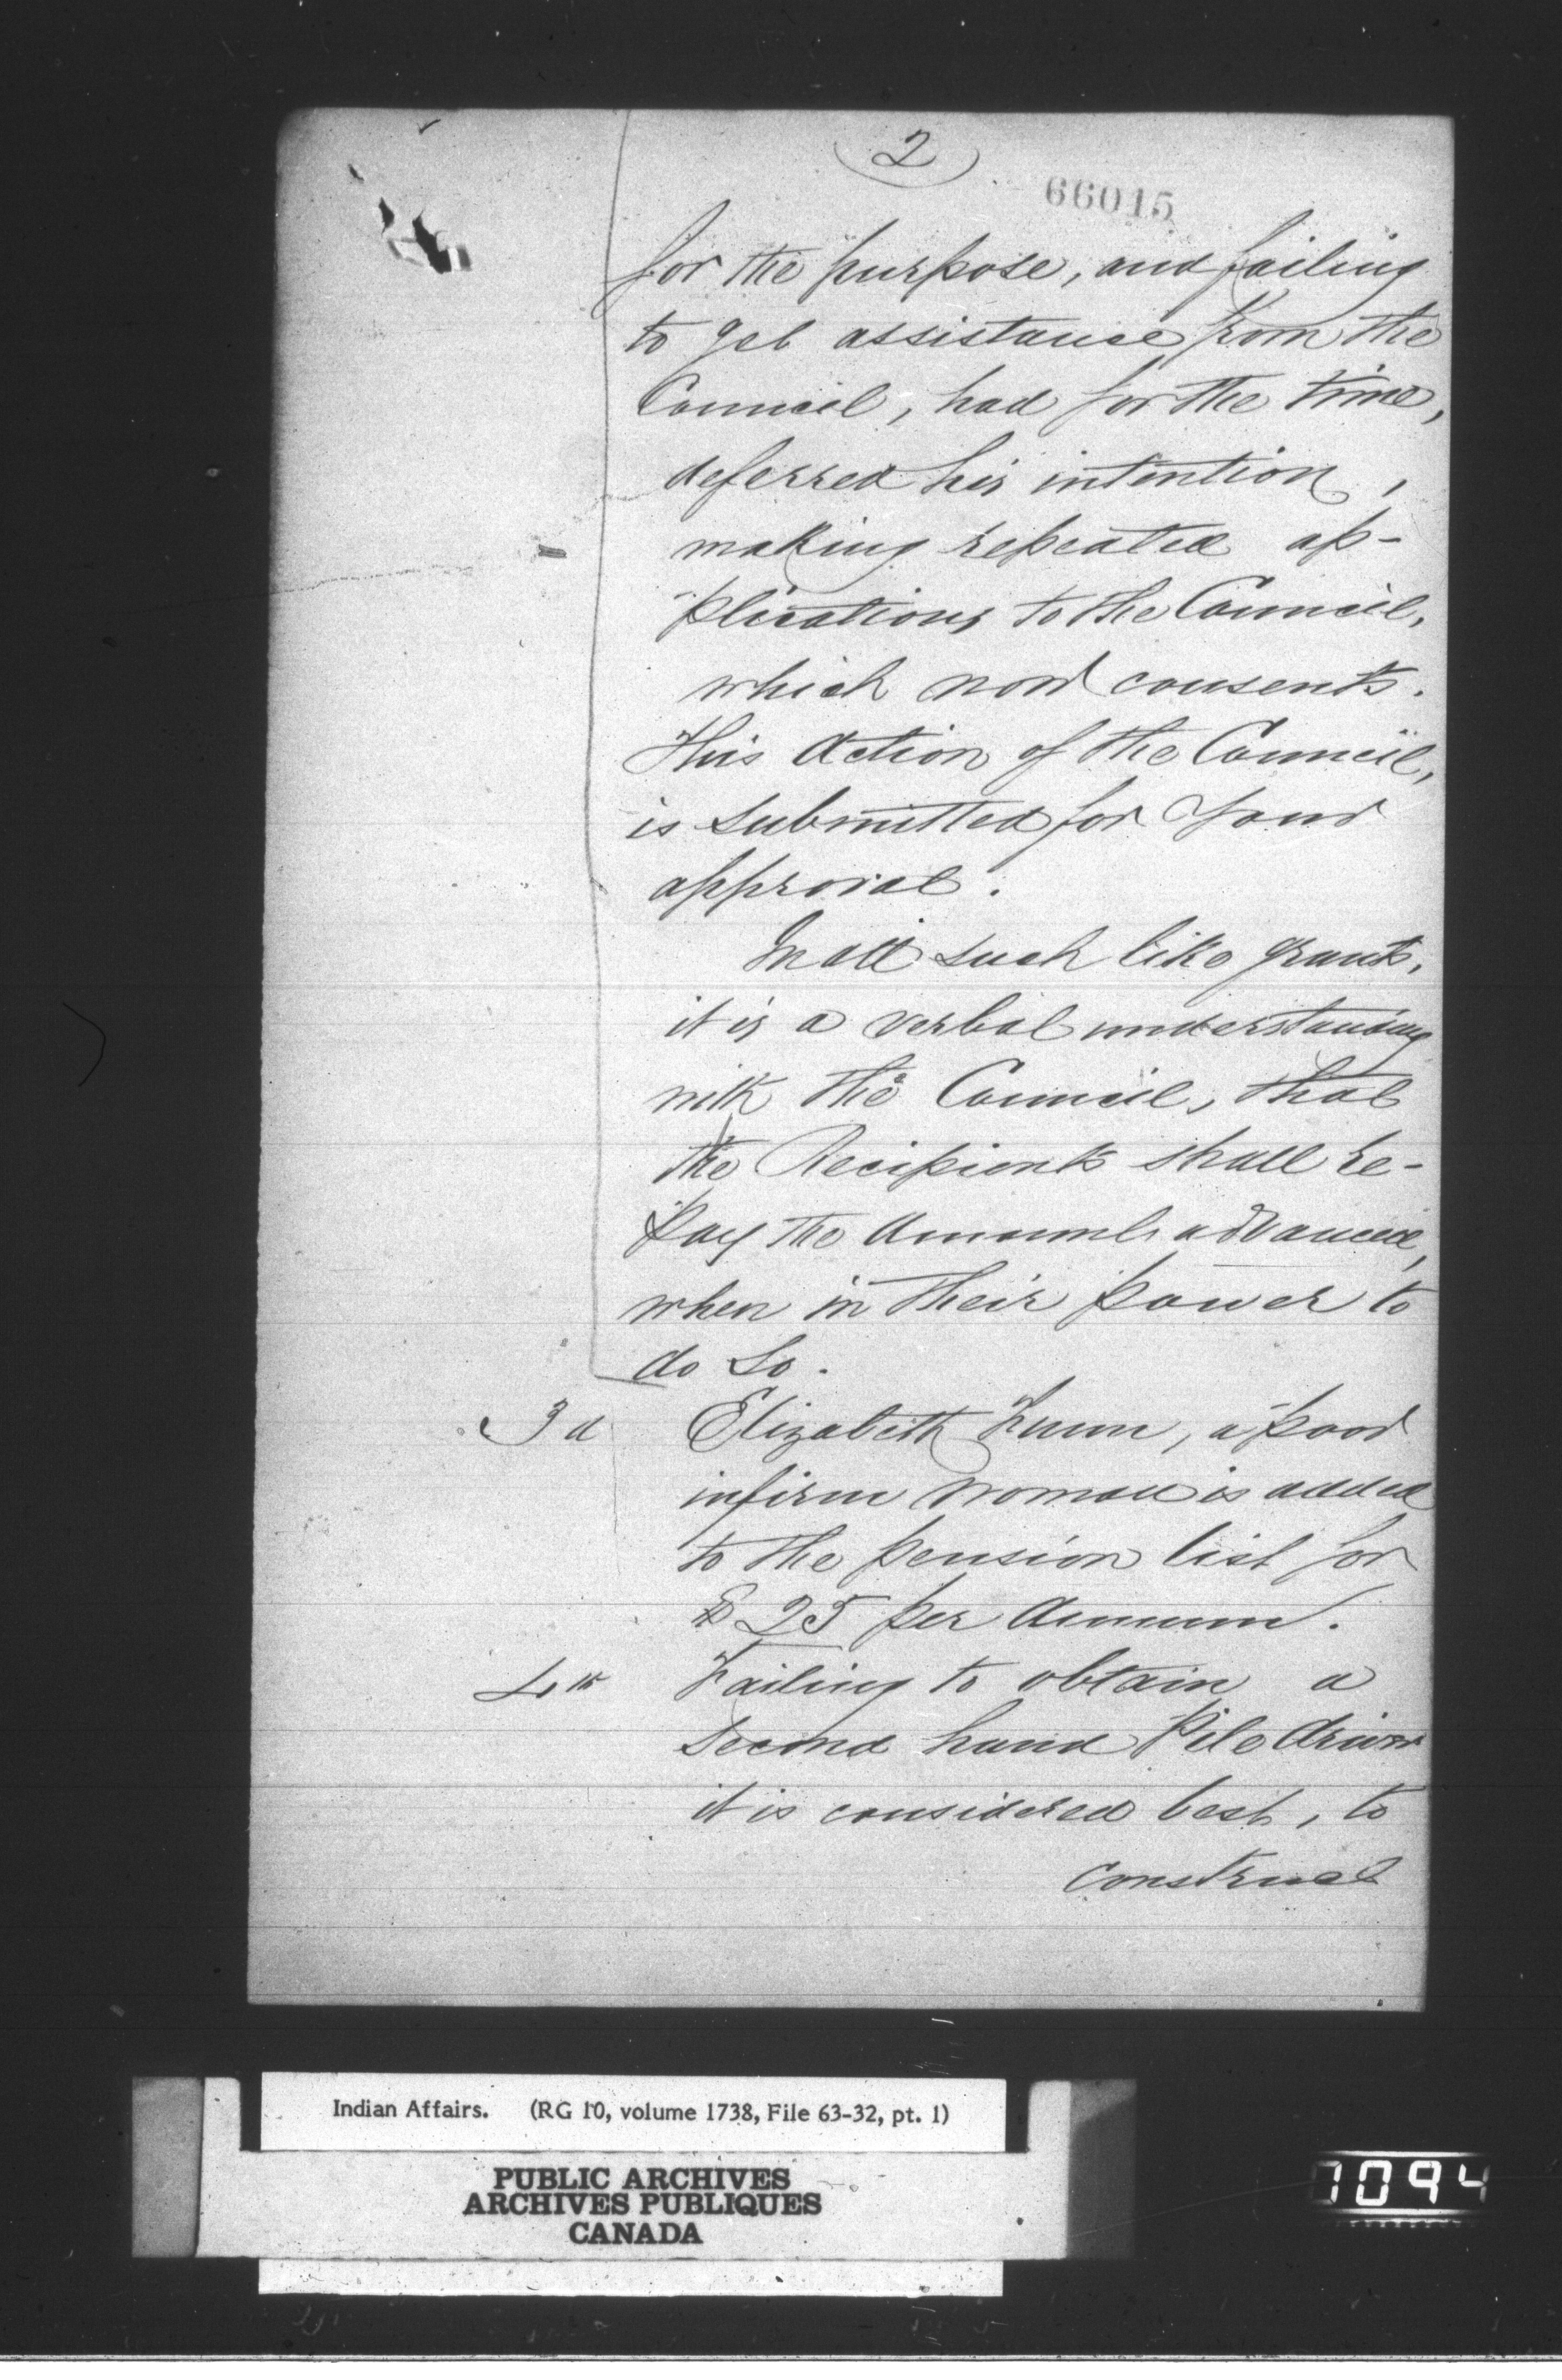 2
66015
for the purpose, and failing
to get assistance from the
Council, had for the time,
deferred his intention,
making repeated ap-
plications to the Council,
which now consents.
This Action of the Council,
is submitted for Your
approval.
In all such like grants,
it is a verbal understanding
with the Council, that
the Recipients shall re-
pay the Amounts advanced,
when in their power to
do so.
3d Elizabeth, a poor
infirm woman is added
to the pension list for
$25 per Annum.
4th Failing to obtain a
second hand Pile driver
it is considered best, to
construct
Indian Affairs. (RG 10, volume 1738, File 63-32, pt. 1)
PUBLIC ARCHIVES
ARCHIVES PUBLIQUES
CANADA
1094